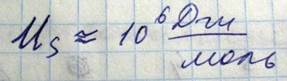 U_S ≈ 10^6 Дж/моль